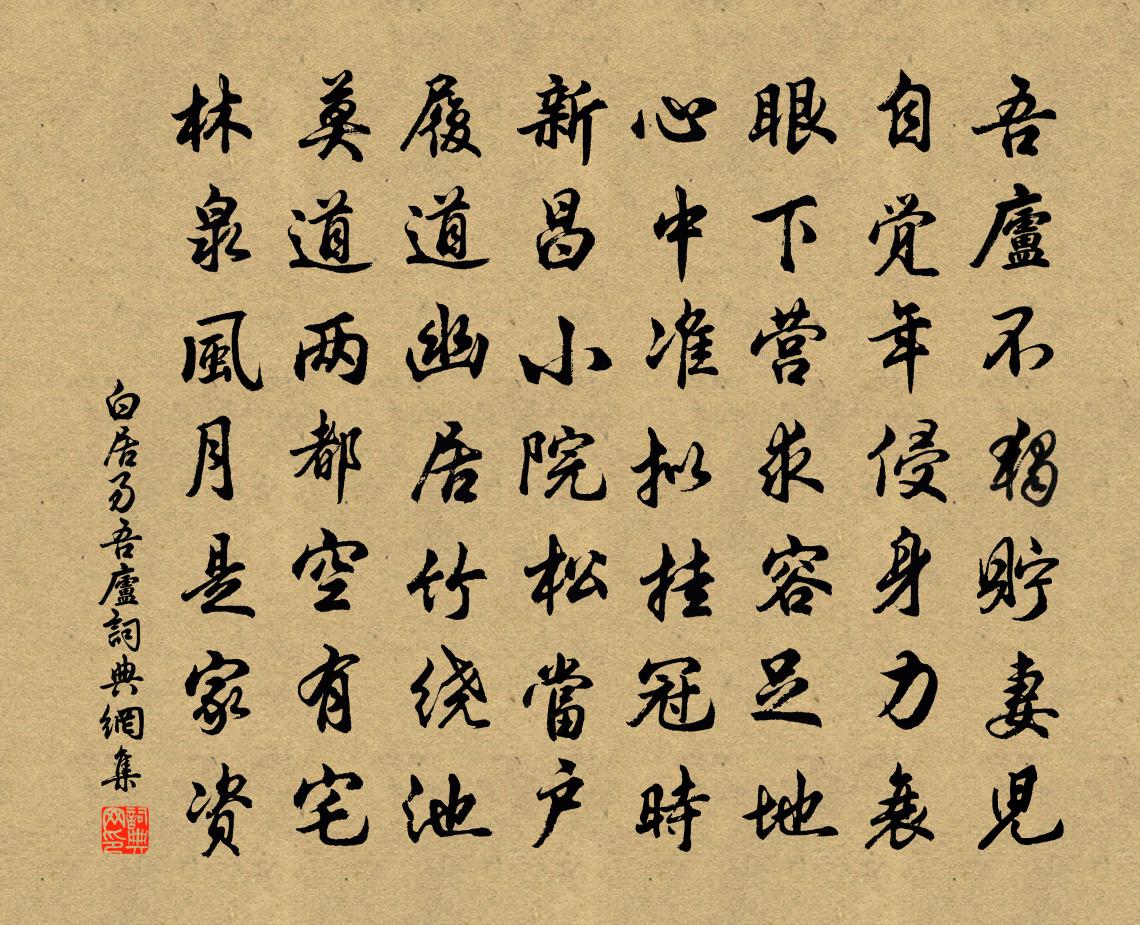 吾廬不獨貯妻兒
自觉年侵身力衰
眼下营求容足地
心中准拟挂冠時
新昌小院松當户
履道幽居竹绕池
莫道两都空有宅
林泉風月是家资
白居易吾廬詞典網集
詞典網印